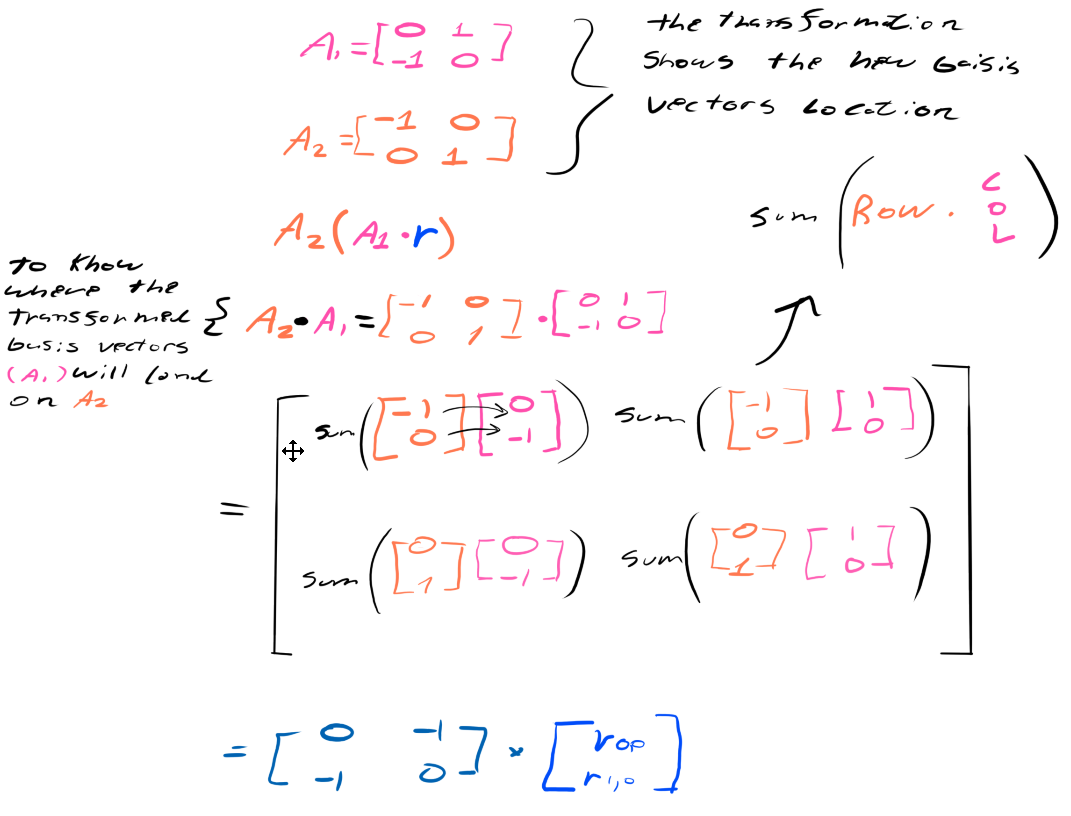 A₁ = [0 1
-1 0]
the transformation
shows the new basis
vectors location
A₂ = [-1 0
0 1]
sum (Row · COL)
A₂(A₁ · r)
to know
where the
transformed
basis vectors
(A₁) will land
on A₂
A₂ • A₁ = [-1 0
0 1] · [0 1
-1 0]
= [sum([-1 0] [0 -1]) sum([-1 0] [1 0])
sum([0 1] [0 -1]) sum([0 1] [1 0])]
= [0 -1
-1 0] * [r0,0
r1,0]